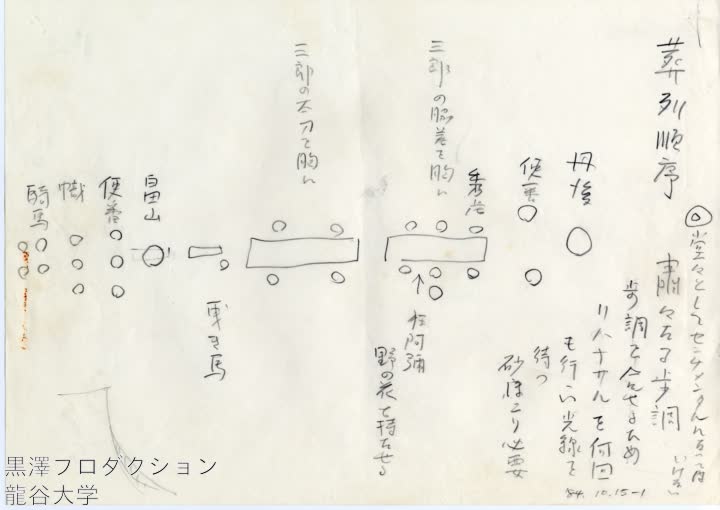 葬列順序 粛々たる歩調
◎堂々としてセンチメンタルになっては
いけない
歩調を合せるため
リハーサルを何回
も行い光線を
待つ
砂ほこり必要
丹後
使番
秀虎
三郎の脇差を胸に
狂阿彌
野の花を持たせる
三郎の太刀を胸に
曳き馬
畠山
使番
幟
騎馬
'84.10.15-1
黒澤プロダクション
龍谷大学